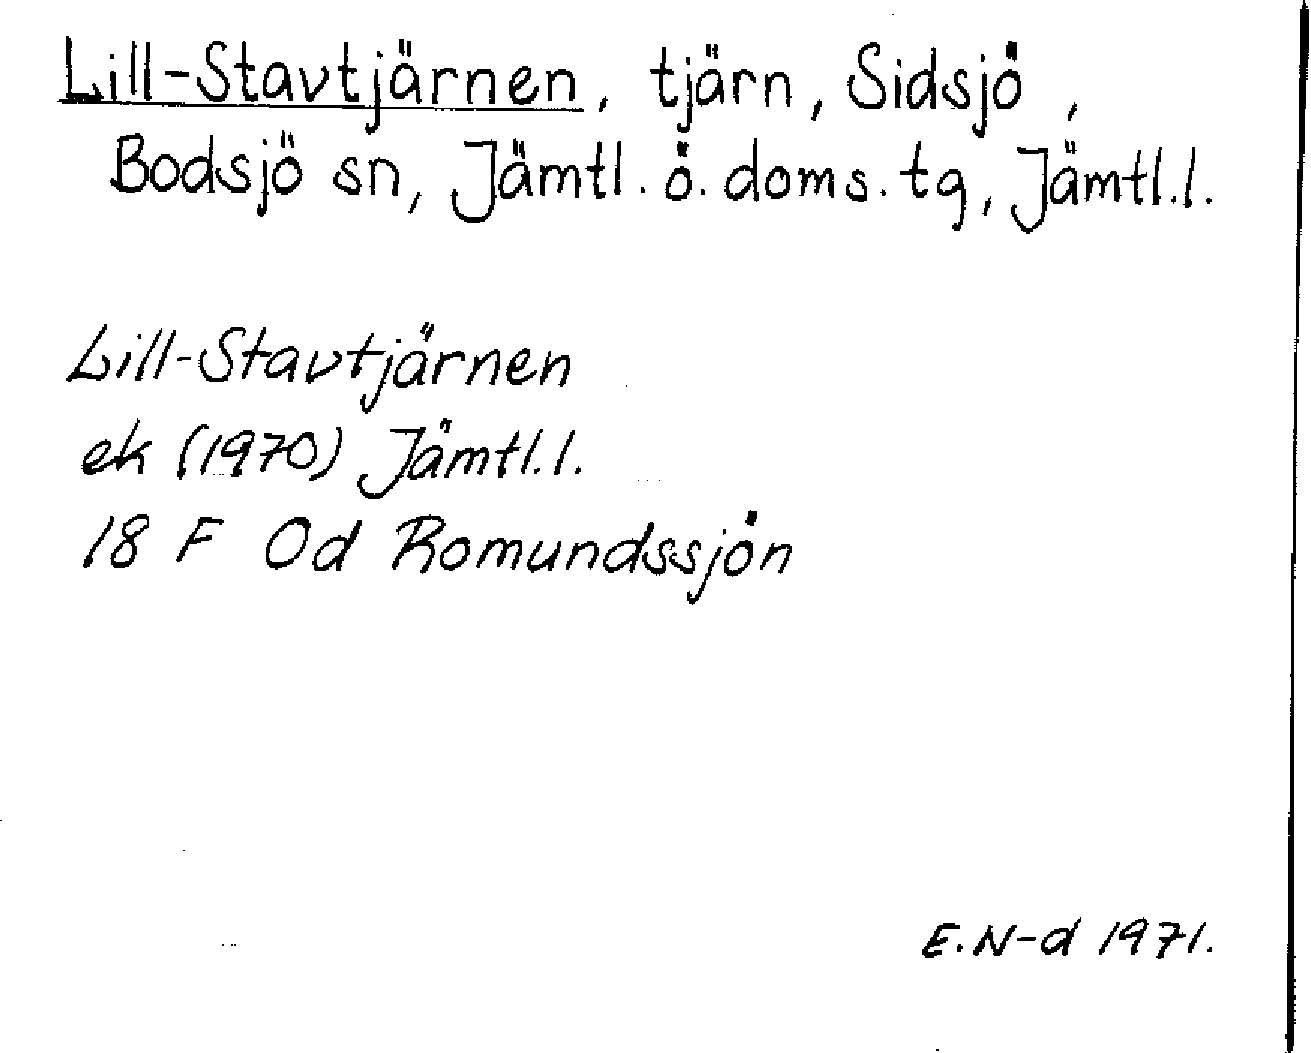 Lill-Stavtjärnen, tjärn, Sidsjö,
Bodsjö sn, Jämtl. ö. doms. tg, Jämtl.l.
Lill-Stavtjärnen
ek (1970) Jämtl.l.
18 F Od Romundssjön
E.N-d 1971.